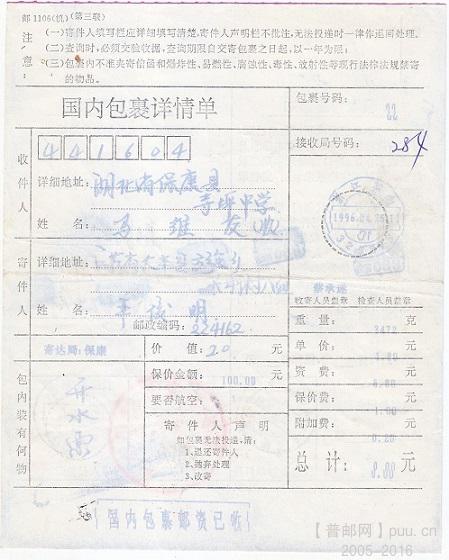 邮1106(机)(第三联)
注意:
(一)寄件人填写栏应详细填写清楚,寄件人声明栏不批注,无法投递时一律作退回处理。
(二)查询时,必须交验收据,查询期限自交寄包裹之日起,以一年为限;
(三)包裹内不准夹寄信函和爆炸性、易燃性、腐蚀性、毒性、放射性等现行法律法规禁寄
的物品。
国内包裹详情单
包裹号码:
22
接收局号码:
284
收件人
441604
详细地址:
湖北省保康县
寺坪中学
姓名:
马
友 收
1996
01
寄件人
详细地址:
姓名:
明
邮政编码:
224162
收寄人员盖章 检查人员盖章
重量: 克
单价: 元
寄达局:保康
价值: 20 元
资费: 元
包内装有何物
开水
保价金额: 100.00 元
保价费: 1.00 元
要否航空:
附加费: 0.20 元
寄件人声明
如包裹无法投递,请:
1、退还寄件人
2、抛弃处理
3、改寄
总计: 8.00 元
国内包裹邮资已收
[普邮网] puu.cn
2005-2016